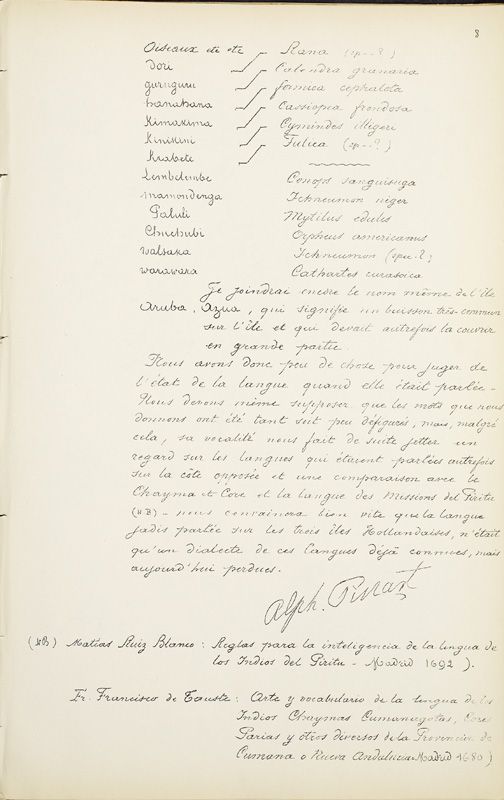 8
Oiseaux etc etc Rana (sp--?)
Dori Calandra granaria
gurugura formica cephalota
hanahana Cassiopea frondosa
Kimakima Cymindes illigere
Kinikini Fulica (sp--?)
Krabete
Lembelembe Conops sanguisuga
mamondenga Ichneumon niger
Paluli Mytilus edules
Chuchubi Orpheus americanus
walsaka Ichneumon (spec-?)
warawara Cathartes curasoica
Je joindrai encore le nom même de l'île
Aruba, Azua, qui signifie un buisson très-commun
sur l'île et qui devait autrefois la couvrir
en grande partie.
Nous avons donc peu de chose pour juger de
l'état de la langue quand elle était parlée -
Nous devons même supposer que les mots que nous
donnons ont été tant soit peu défigurés, mais, malgré
cela, sa vocalité nous fait de suite jetter un
regard sur les langues qui étaient parlées autrefois
sur la côte opposée et une comparaison avec le
Chayma et Core et la langue des Missions del Piritu
(N.B) - nous convaincra bien vite que la langue
jadis parlée sur les trois îles Hollandaises, n'était
qu'un dialecte de ces langues déjà connues, mais
aujourd'hui perdues.
Alph. Pinart
(NB) Matias Ruiz Blanco : Reglas para la inteligencia de la lingua de
los Indios del Piritu - Madrid 1692 ).
Fr. Francisco de Tauste : Arte y vocabulario de la lengua de los
Indios Chaymas Cumanagotas, Cores
Parias y otros diversos de la Provincia de
Cumana o Nueva Andalucia - Madrid 1680 )